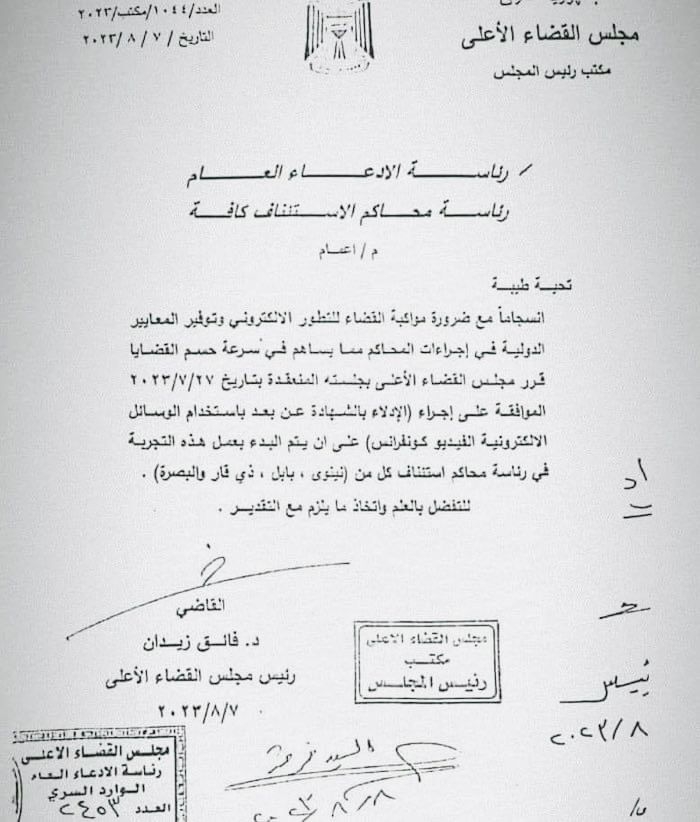 مجلس القضاء الأعلى
مكتب رئيس المجلس
العدد/١٠٤٤/مكتب/٢٠٢٣
التاريخ / ٧ / ٨ / ٢٠٢٣
/ رئاسة الادعاء العام
رئاسة محاكم الاستئناف كافة
م / اعمام
تحية طيبة
انسجاماً مع ضرورة مواكبة القضاء للتطور الالكتروني وتوفير المعايير
الدولية في إجراءات المحاكم مما يساهم في سرعة حسم القضايا
قرر مجلس القضاء الأعلى بجلسته المنعقدة بتاريخ ٢٠٢٣/٧/٢٧
الموافقة على إجراء (الإدلاء بالشهادة عن بعد باستخدام الوسائل
الالكترونية الفيديو كونفرانس) على ان يتم البدء بعمل هذه التجربة
في رئاسة محاكم استئناف كل من (نينوى ، بابل ، ذي قار والبصرة) .
للتفضل بالعلم واتخاذ ما يلزم مع التقدير .
القاضي
د. فائق زيدان
رئيس مجلس القضاء الأعلى
٢٠٢٣/٨/٧
مجلس القضاء الاعلى
مكتب
رئيس المجلس
٢٠٢٣/٨
٢٠٢٣/٨/٨
مجلس القضاء الاعلى
رئاسة الادعاء العام
الوارد السري
العدد ٢٤٥٣